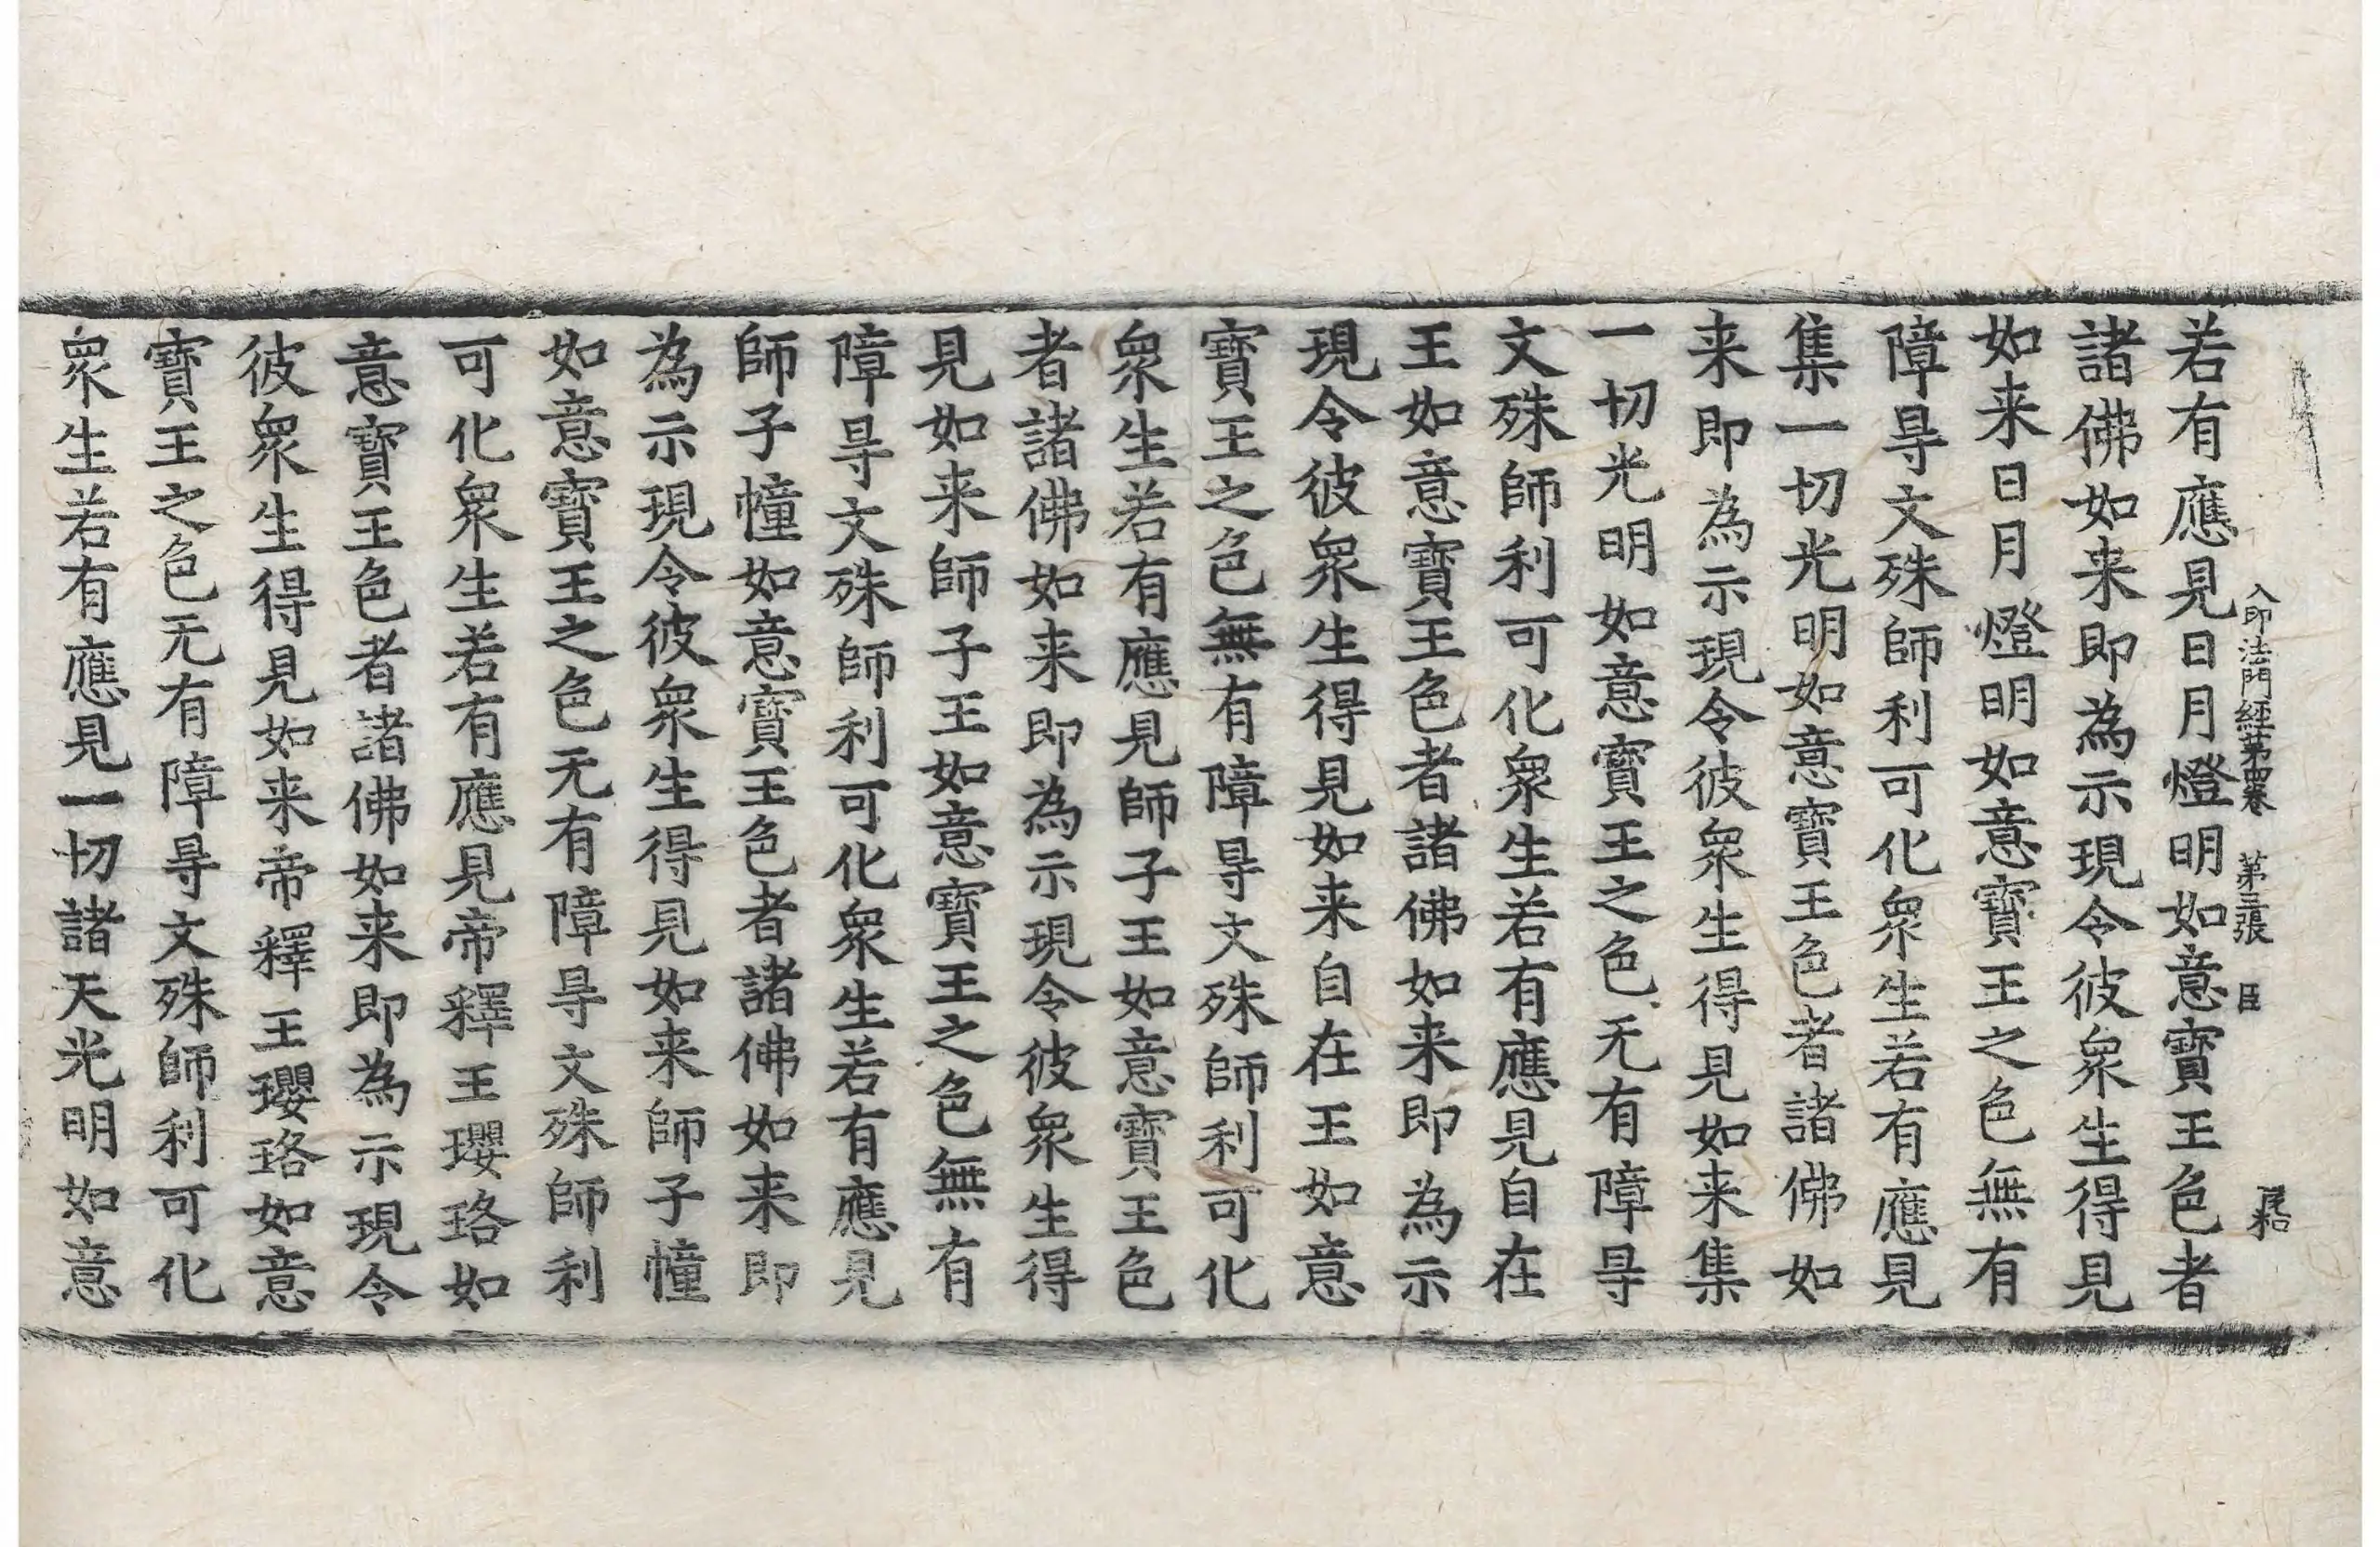 入印法門經第四卷　第三張　臣
若有應見日月燈明如意寶王色者
諸佛如来即為示現令彼衆生得見
如来日月燈明如意寶王之色無有
障㝵文殊師利可化衆生若有應見
集一切光明如意寶王色者諸佛如
来即為示現令彼衆生得見如来集
一切光明如意寶王之色无有障㝵
文殊師利可化衆生若有應見自在
王如意寶王色者諸佛如来即為示
現令彼衆生得見如来自在王如意
寶王之色無有障㝵文殊師利可化
衆生若有應見師子王如意寶王色
者諸佛如来即為示現令彼衆生得
見如来師子王如意寶王之色無有
障㝵文殊師利可化衆生若有應見
師子幢如意寶王色者諸佛如来即
為示現令彼衆生得見如来師子幢
如意寶王之色无有障㝵文殊師利
可化衆生若有應見帝釋王瓔珞如
意寶王色者諸佛如来即為示現令
彼衆生得見如来帝釋王瓔珞如意
寶王之色无有障㝵文殊師利可化
衆生若有應見一切諸天光明如意